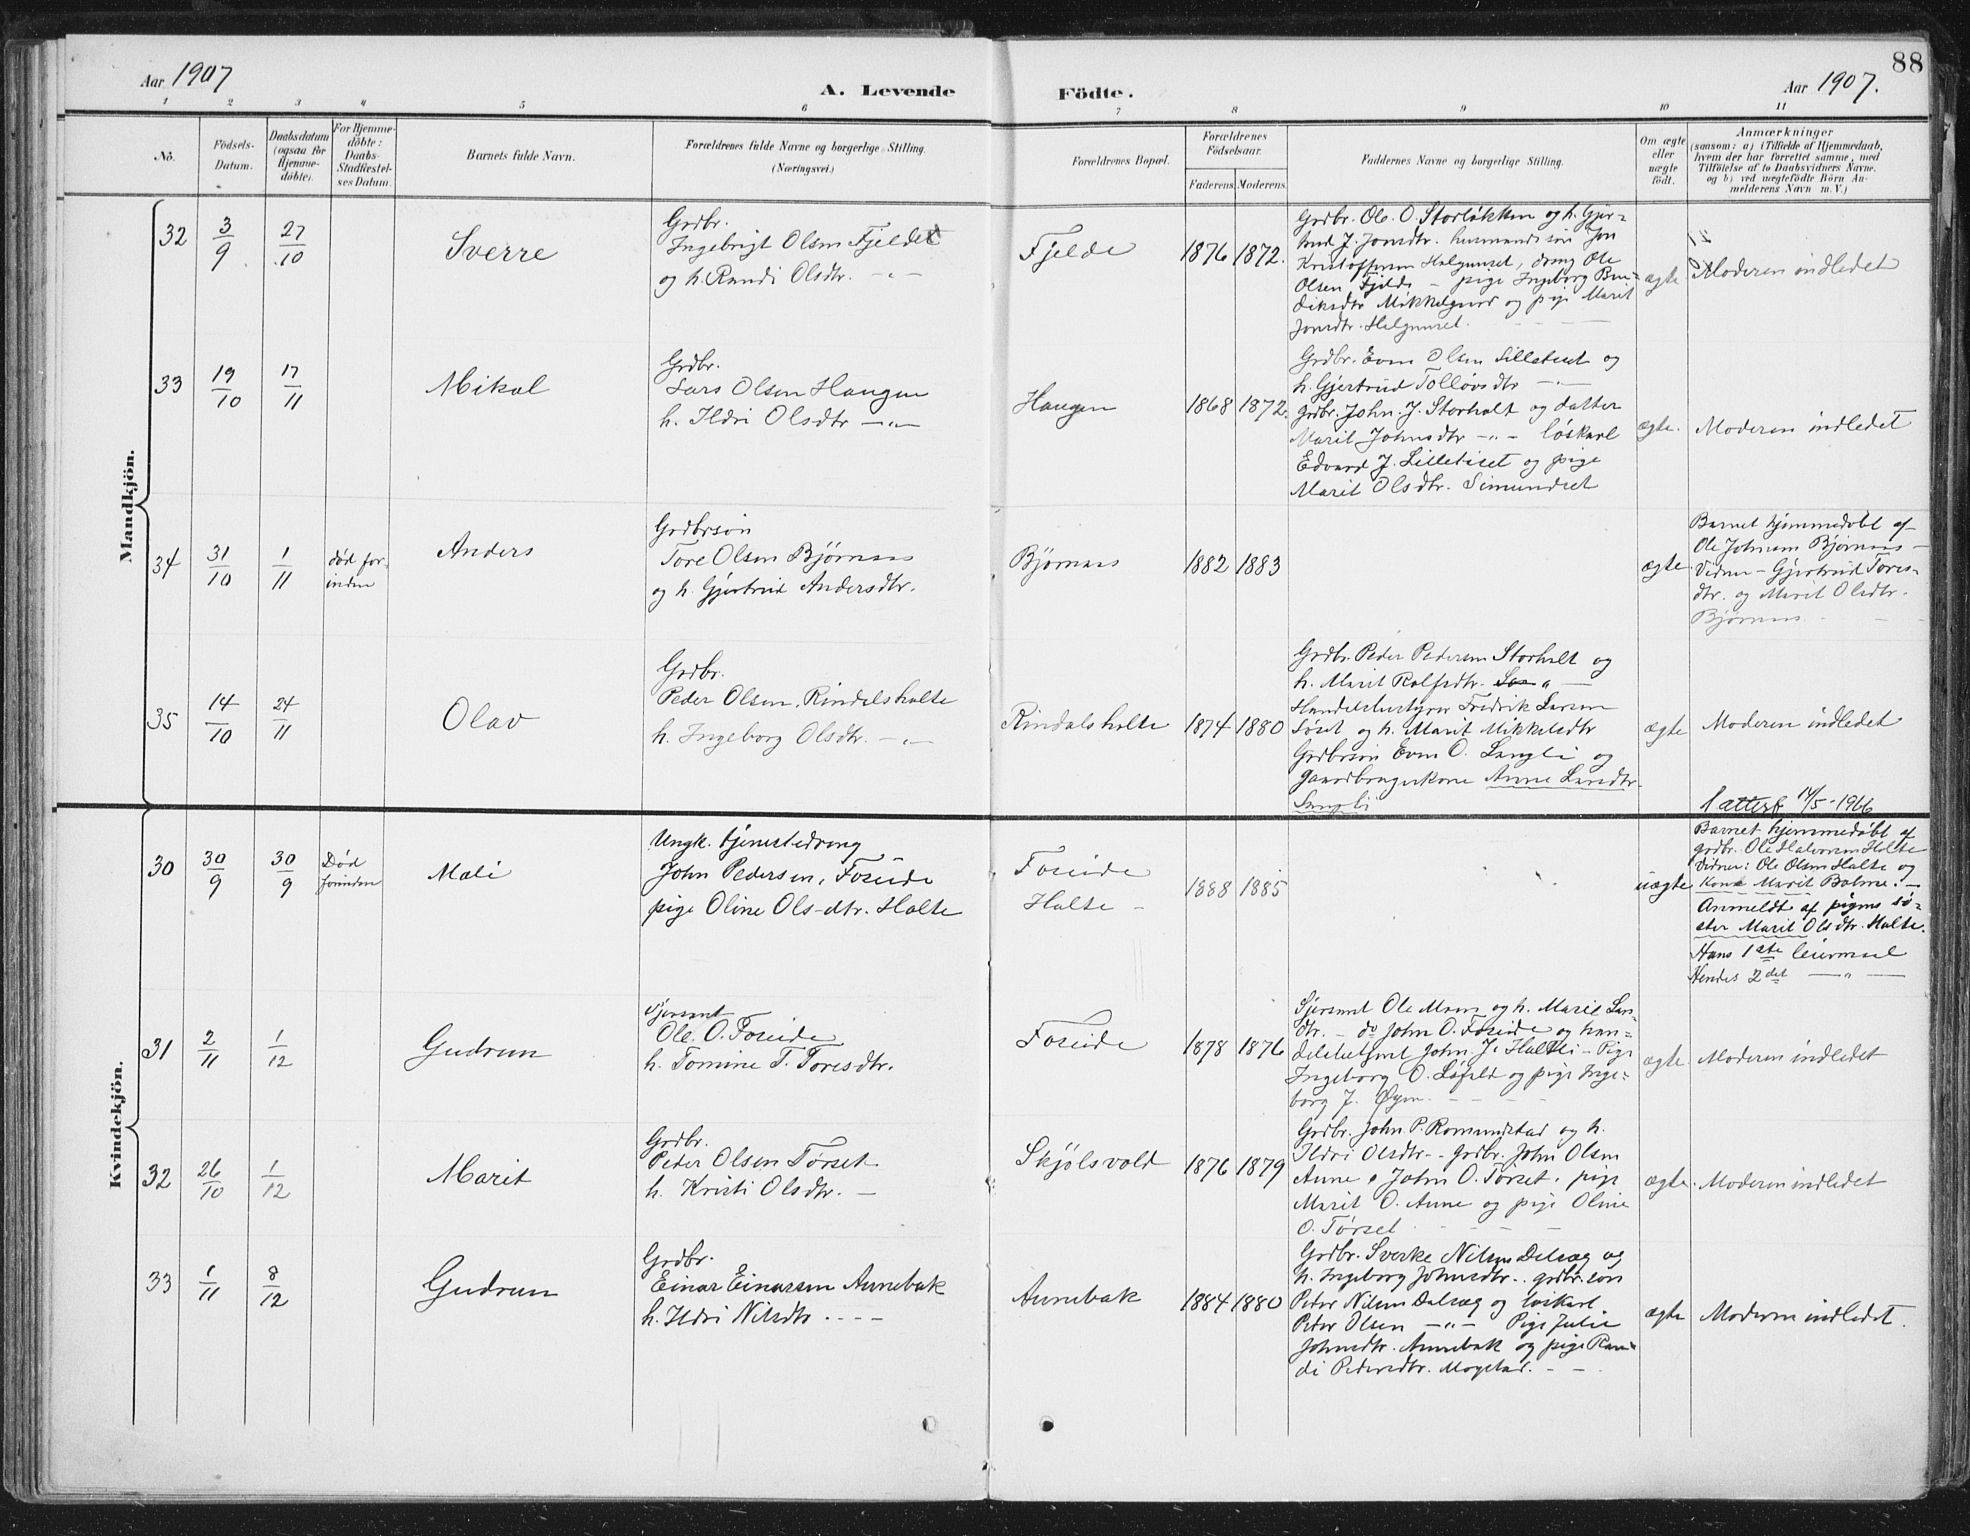 88
Aar 1907
A. Levende Födte.
Aar 1907.
1 2 3 4 5 6 7 8 9 10 11
No.
Födsels-
Datum.
Daabsdatum
(ogsaa for
Hjemme-
döbte).
For Hjemme-
döbte:
Daabs-
Stadfæstel-
ses Datum.
Barnets fulde Navn.
Forældrenes fulde Navne og borgerlige Stilling.
(Næringsvei.)
Forældrenes Bopæl.
Forældrenes
Födselsaar.
Faderens Moderens
Faddernes Navne og borgerlige Stilling.
Om ægte
eller
uægte
födt.
Anmærkninger
(saasom: a) i Tilfælde af Hjemmedaab,
hvem der har forrettet samme, med
Tilföielse af to Daabsvidners Navne.
og b) ved uægtefödte Börn An-
melderens Navn m. V.)
Mandkjön.
32
3/9
27/10
Sverre
Grdbr.
Ingebrigt Olsen Fjelde
og h. Randi Olsdtr. -"-
Fjelde
1876 1872.
Grdbr. Ole O. Storløkken og h. Gjer-
trud J. Jonsdtr. husmandssøn Jon
Kristoffersen Helgunset, dreng Ole
Olsen Fjelde - pige Ingeborg Ben-
diksdtr Mikkelgaard og pige Marit
Jonsdtr. Helgunset.
ægte
Moderen indledet
33
19/10
17/11
Mikal
Grdbr.
Lars Olsen Haugen
h. Ildri Olsdtr -"-
Haugen
1868 1872.
Grdbr. Even Olsen Lilletiset og
h. Gjertrud Tollevsdtr -"-
grdbr. John J. Storholt og datter
Marit Johnsdtr -"- løskarl
Edvard J. Lilletiset og pige
Marit Olsdtr. Simundset
ægte.
Moderen indledet
34
31/10
1/11
død for-
inden
Anders
Grdbrsøn
Tore Olsen Bjørnaas
og h. Gjertrud Andersdtr.
Bjørnaas
1882 1883
ægte
Barnet hjemmedøbt af
Ole Johnsen Bjørnaas -
Vidner - Gjertrud Tores-
dtr. og Marit Olsdtr.
Bjørnaas
35
14/10
24/11
Olav
Grdbr.
Peder Olsen Rindalsholte
h. Ingeborg Olsdtr. -"-
Rindalsholte
1874 1880
Grdbr. Peder Pedersen Storholt og
h. Marit Rolfsdtr. -"-
Handelsbestyrer Fredrik Larsen
Løset og h. Marit Mikkelsdtr
Grdbrsøn Even O. Langli og
gaardbrugerkone Anne Larsdtr.
Langli
ægte
Moderen indledet
1 attest 14/5-1966
Kvindekjön.
30
30/9
30/9
Død
forinden
Mali
Ungk. tjenestedreng
John Pedersen, Foseide
pige Oline Ols-dtr. Holte
Foseide
Holte -
1888 1885
uægte
Barnet hjemmedøbt af
grdbr. Ole Halvorsen Holte
Vidner: Ole Olsen Holte og
Kone Marit Bolme. -
Anmeldt af pigens sø-
ster Marit Olsdtr. Holte.
Hans 1ste leiermaal
Hendes 2det -"-
31
2/11
1/12
Gudrun
Sjersant
Ole O. Foseide
h. Tomine T. Toresdtr.
Foseide
1878 1876
Sjersant Ole Moen og h. Marit Lars-
dtr. - do John O. Foseide og han-
delsbetjent John J. Halsti - Pige
Ingeborg O. Løfald og pige Inge-
borg J. Øyen.
ægte.
Moderen indledet
32
26/10
1/12
Marit
Grdbr.
Peder Olsen Tørset
h. Kristi Olsdtr. -
Skjølsvold
1876 1879
Grdbr. John P. Romundstad og h.
Ildri Olsdtr - Grdbr. John Olsen
Aune, John O. Tørset, pige
Marit O. Aune og pige Oline
O. Tørset
ægte.
Moderen indledet
33
1/11
8/12
Gudrun
Grdbr.
Einar Einarsen Aunebak
h. Ildri Nilsdtr
Aunebak
1884 1880
Grdbr. Sverke Nilsen Dalsæg og
h. Ingeborg Johnsdtr. grdbr.søn
Peder Nilsen Dalsæg og løskarl
Peder Olsen -"- Pige Julie
Johnsdtr. Aunebak og pige Ran-
di Pedersdtr. Mogstad.
ægte
Moderen indledet.